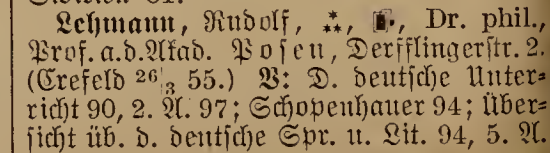 Lehmann, Rudolf, Dr. phil.,
Prof. a. d. Akad. Posen, Derfflingerstr. 2.
(Crefeld 26/3 55.) V: D. deutsche Unter-
richt 90, 2. A. 97; Schopenhauer 94; Über-
sicht üb. d. deutsche Spr. u. Lit. 94, 5. A.